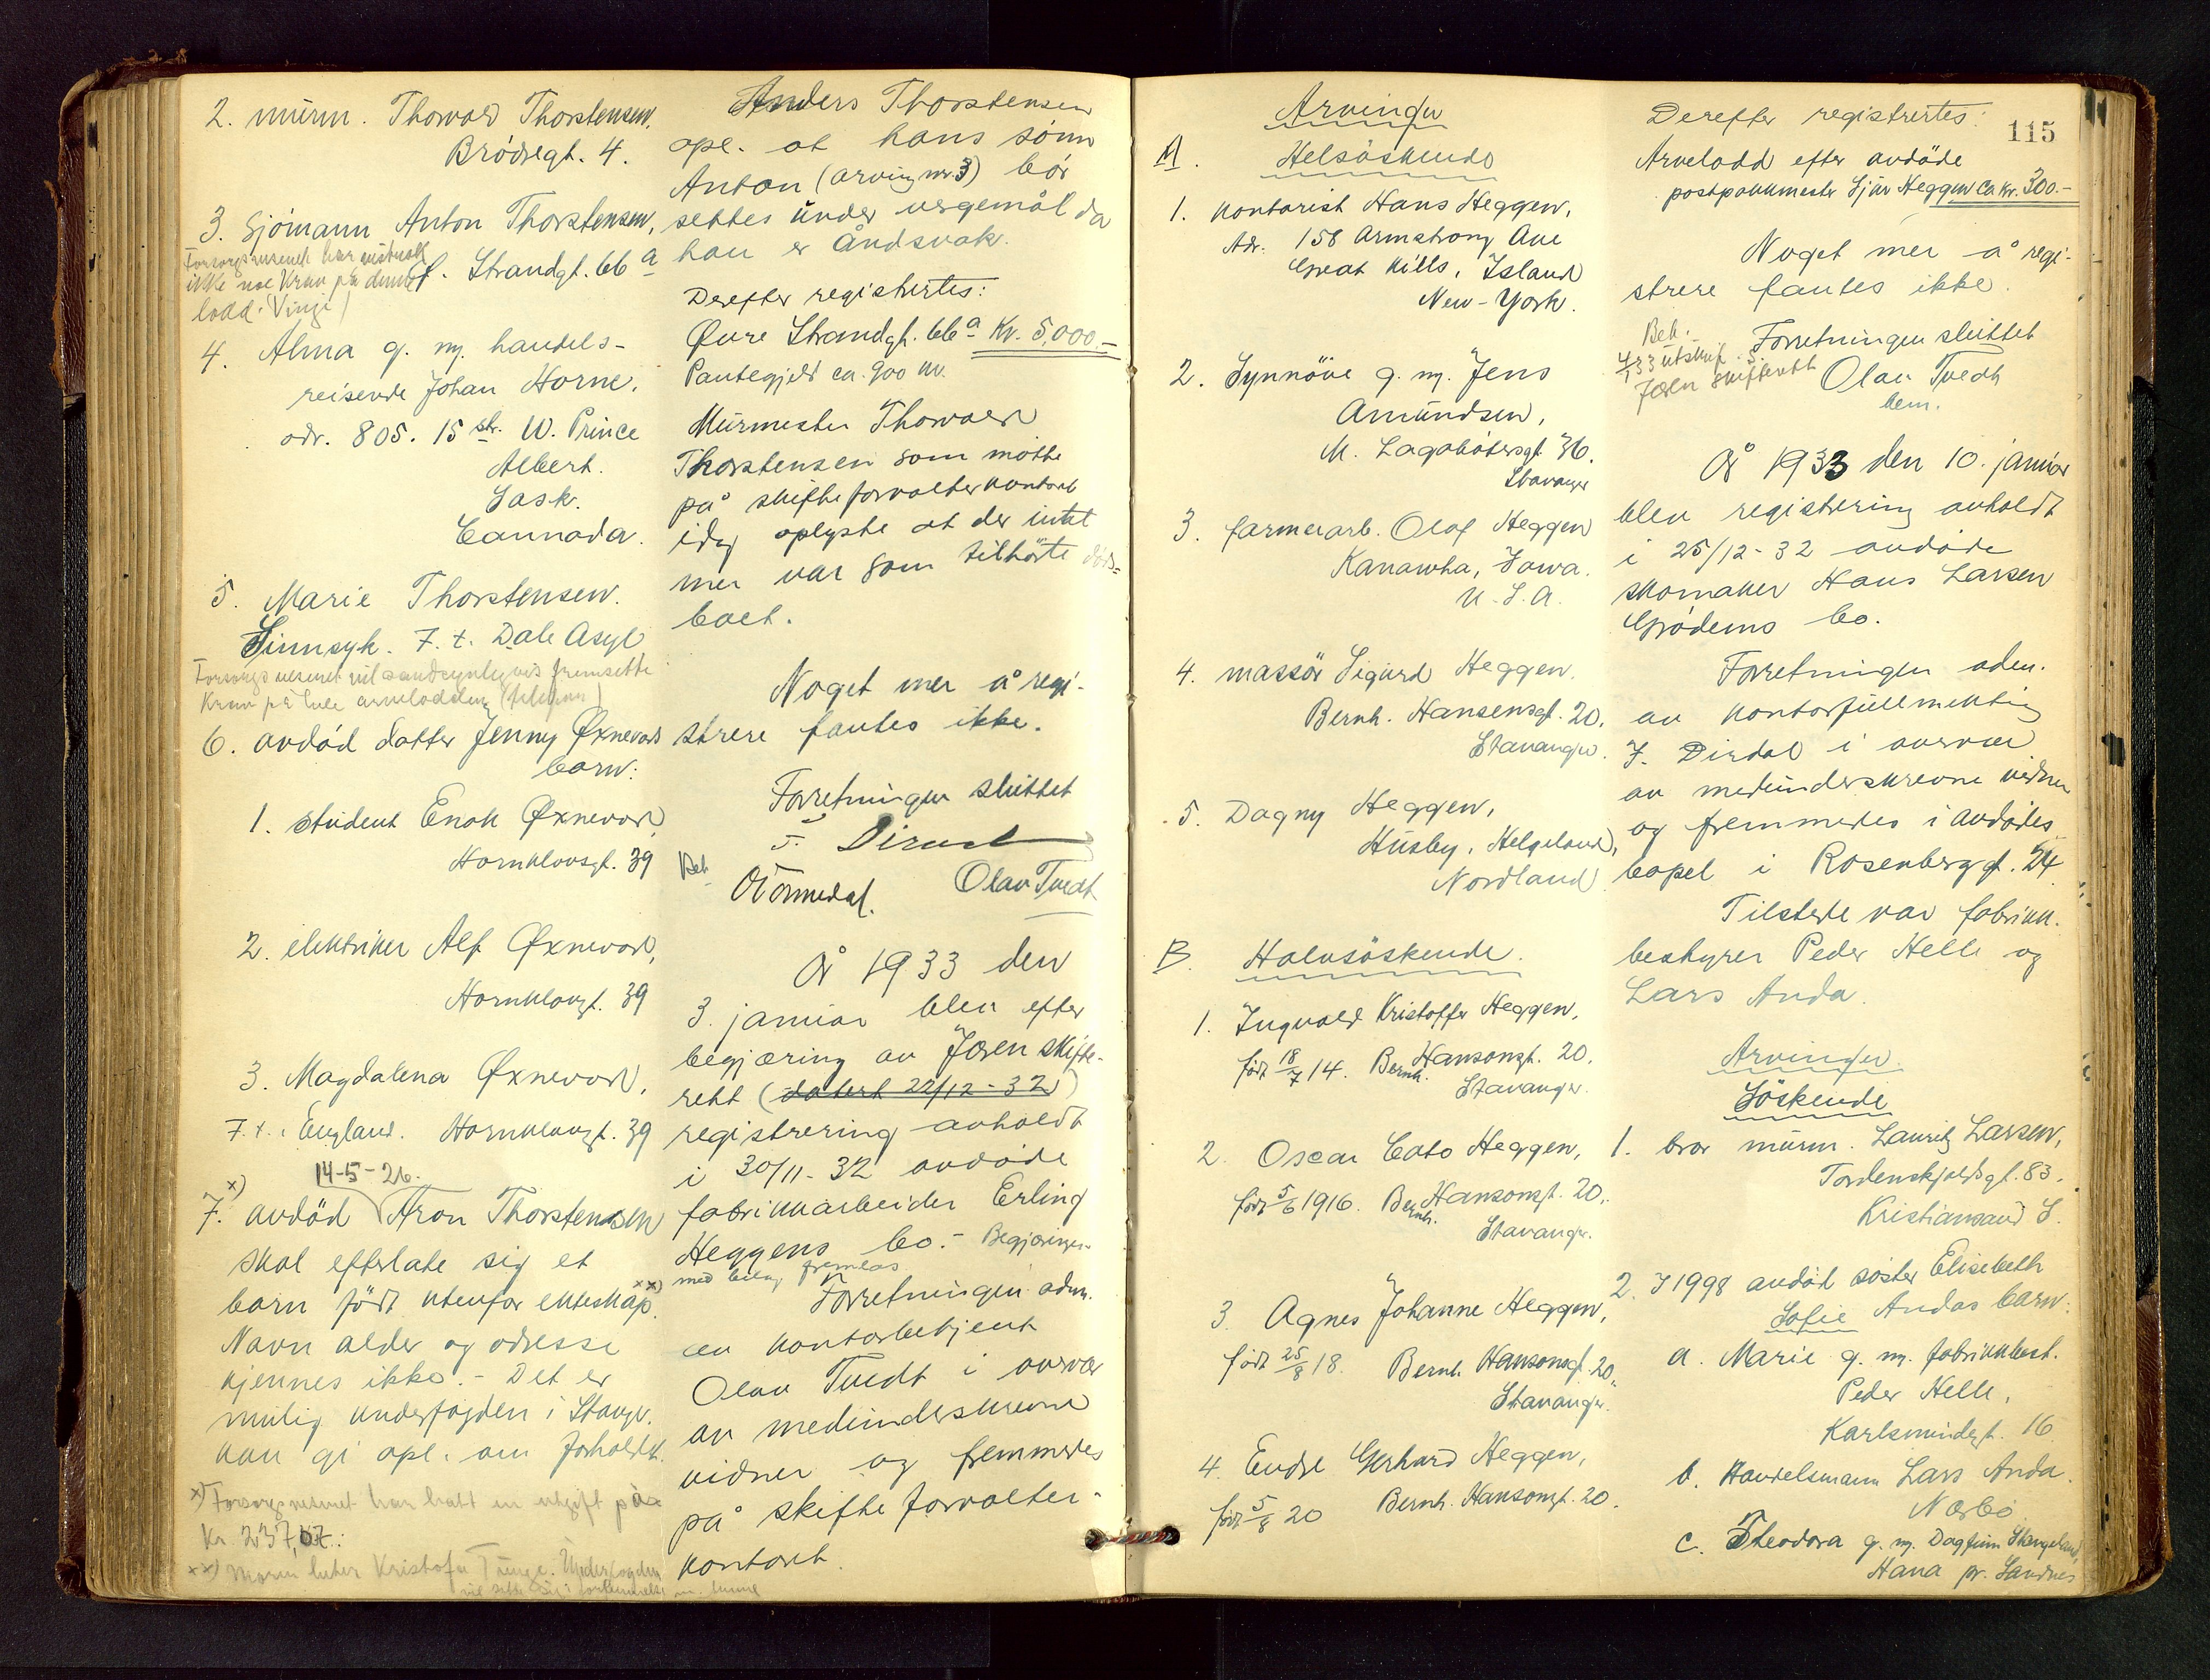 2. murm. Thorvald Thorstensen,
Brødregt. 4.
3. Sjømann Anton Thorstensen,
Forsorgsvesenet har
ikke noe krav på denne
lodd. Vinje)
Ø. Strandgt. 66 a
4. Alma g. m. handels-
reisende Johan Horne,
adr. 805. 15 str. W. Prince
Albert.
Sask.
Cannada.
5. Marie Thorstensen.
Sinnsyk. F. t. Dale Asyl
Forsorgsvesenet vil sandsynligvis fremsette
Krav på hele arvelodden (telefon)
6. avdød datter Jenny Øxnevads
barn:
1. student Enok Øxnevad,
Hornklovsgt. 39
2. elektriker Alf Øxnevad,
Hornklovgt. 39
3. Magdalena Øxnevad,
F. t. i England. Hornklovgt. 39
14-5-26.
x)
7. avdød Aron Thorstensen
skal efterlate sig et
barn født utenfor ekteskap. xx)
Navn alder og adresse
kjennes ikke. - Det er
mulig underfogden i Stavgr.
kan gi opl. om forholdet.
x) Forsorgsvesenet har hatt en utgift på
Kr. 237,07.
xx) Moren heter Kristofa Tunge. Underfogden
vil sette sig i forbindelse m. henne
Anders Thorstensen
opl. at hans sønn
Anton (arving nr. 3) bør
settes under vergemål da
han er åndsvak.
Derefter registrertes:
Øvre Strandgt. 66 a Kr. 5,000.-
Pantegjeld ca. 900 kr.
Murmester Thorvald
Thorstensen som møtte
på skifteforvalterkontoret
idag oplyste at der intet
mer var som tilhørte døds-
boet.
Noget mer å regi-
strere fantes ikke.
Forretningen sluttet
F. Dirdal
Beh.
O Tømmedal. Olav Tvedt
År 1933 den
3. januar blev efter
begjæring av Jæren skifte-
rett (datert 22/12-32)
registrering avholdt
i 30/11-32 avdøde
fabrikkarbeider Erling
Heggens bo. - Begjæringen
med bilag fremlas
Forretningen adm.
av kontorbetjent
Olav Tvedt i overvær
av medunderskrevne
vidner og fremmedes
på skifteforvalter-
kontoret.
Arvinger
A. Helsøskende
1. kontorist Hans Heggen,
Adr. 158 Armstrong Ave
Great Kills, Island
New-York.
2. Synnöve g. m. Jens
Amundsen,
M. Lagabøtersgt. 36.
Stavanger
3. farmerarb. Olaf Heggen
Kanawha, Iowa.
U. S. A.
4. massör Sigurd Heggen.
Bernh. Hansensgt. 20,
Stavanger.
5. Dagny Heggen,
Husby, Helgeland,
Nordland
B. Halvsøskende.
1. Ingvald Kristoffer Heggen,
født 18/7 14. Bernh. Hansensgt. 20.
Stavanger.
2. Oscar Cato Heggen,
født 5/6 1916. Bernh. Hansonsgt. 20.
Stavanger.
3. Agnes Johanne Heggen,
født 25/8 18. Bernh. Hansonsgt. 20,
Stavanger.
4. Endre Gerhard Heggen,
født 5/8 20 Bernh. Hansonsgt. 20.
115
Derefter registrertes:
Arvelodd efter avdøde
postpakkmester Sjur Heggen ca. kr. 300.-
Noget mer å regi-
strere fantes ikke.
Beh.
4/1 33 utskrift s.
Jæren skifterett
Forretningen sluttet
Olav Tvedt
bem.
År 1933 den 10. januar
blev registrering avholdt
i 25/12-32 avdøde
skomaker Hans Larsen
Grødems bo.
Forretningen adm.
av kontorfullmektig
F. Dirdal i overvær
av medunderskrevne vidner
og fremmedes i avdødes
bopel i Rosenberggt. 24.
Tilstede var fabrikk-
bestyrer Peder Helle og
Lars Anda.
Arvinger.
Søskende
1. bror murm. Lauritz Larsen,
Tordenskjoldsgt. 83.
Kristiansand S.
2. I 1998 avdød søster Elisebeth
Sofie Andas barn:
a. Marie g. m. fabrikkbest.
Peder Helle,
Karlsmindegt. 16
b. Handelsmann Lars Anda.
Nærbø
c. Theodora g. m. Dagfinn Skengeland,
Hana pr. Sandnes